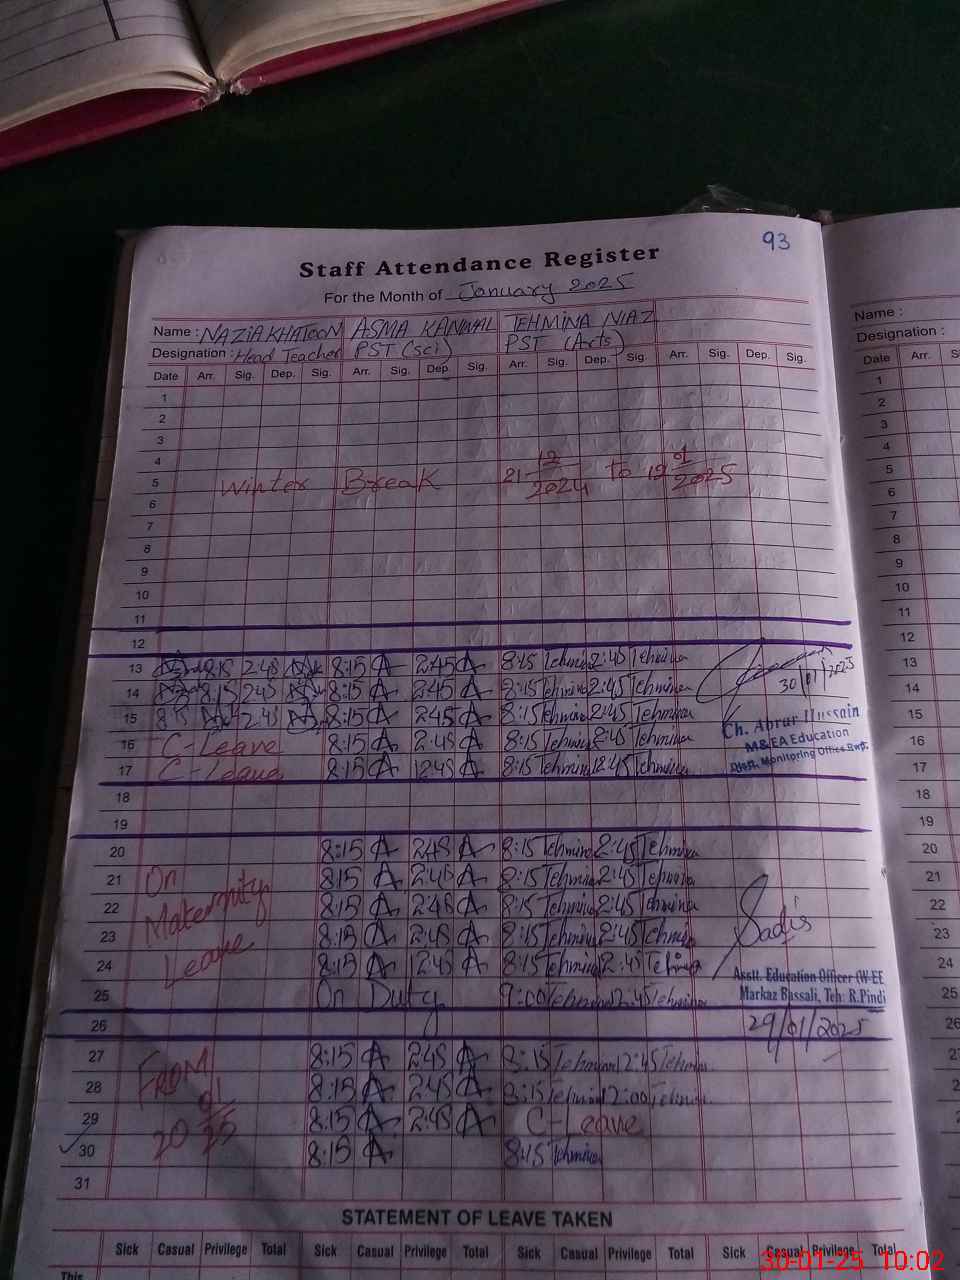 93
Staff Attendance Register
For the Month of January 2025
Name : NAZIA KHATOON ASMA KANWAL TEHMINA NIAZ
Designation : Head Teacher PST (Sci) PST (Arts)
Date Arr. Sig. Dep. Sig. Arr. Sig. Dep. Sig. Arr. Sig. Dep. Sig. Arr. Sig. Dep. Sig.
1
2
3
4
5 Winter Break 21 12/2024 to 12 01/2025
6
7
8
9
10
11
12
13 8:15 2:45 8:15 A 2:45 A 8:15 Tehmina 2:45 Tehmina
14 8:15 2:45 8:15 A 2:45 A 8:15 Tehmina 2:45 Tehmina
30/01/2025
15 8:15 2:45 8:15 A 2:45 A 8:15 Tehmina 2:45 Tehmina
Ch. Abrar Hussain
16 C-Leave 8:15 A 2:45 A 8:15 Tehmina 2:45 Tehmina
M&EA Education
17 C-Leave 8:15 A 12:45 A 8:15 Tehmina 12:45 Tehmina
Distt. Monitoring Office Rwp.
18
19
20 8:15 A 2:45 A 8:15 Tehmina 2:45 Tehmina
21 On 8:15 A 2:45 A 8:15 Tehmina 2:45 Tehmina
22 Maternity 8:15 A 2:45 A 8:15 Tehmina 2:45 Tehmina
23 Leave 8:15 A 2:45 A 8:15 Tehmina 2:45 Tehmina
24 8:15 A 12:45 A 8:15 Tehmina 12:45 Tehmina
Asstt. Education Officer (W-EE
25 On Duty 9:00 Tehmina 12:45 Tehmina
Markaz Bassali, Teh: R.Pindi
26 29/01/2025
27 FROM 8:15 A 2:45 A 8:15 Tehmina 2:45 Tehmina
28 8:15 A 2:45 A 8:15 Tehmina 12:00 Tehmina
29 20 01/25 8:15 A 2:45 A C-Leave
30 8:15 A 8:15 Tehmina
31
STATEMENT OF LEAVE TAKEN
Sick Casual Privilege Total Sick Casual Privilege Total Sick Casual Privilege Total Sick Casual Privilege Total
This
Name :
Designation :
Date Arr.
1
2
3
4
5
6
7
8
9
10
11
12
13
14
15
16
17
18
19
20
21
22
23
24
25
26
30-01-25 10:02